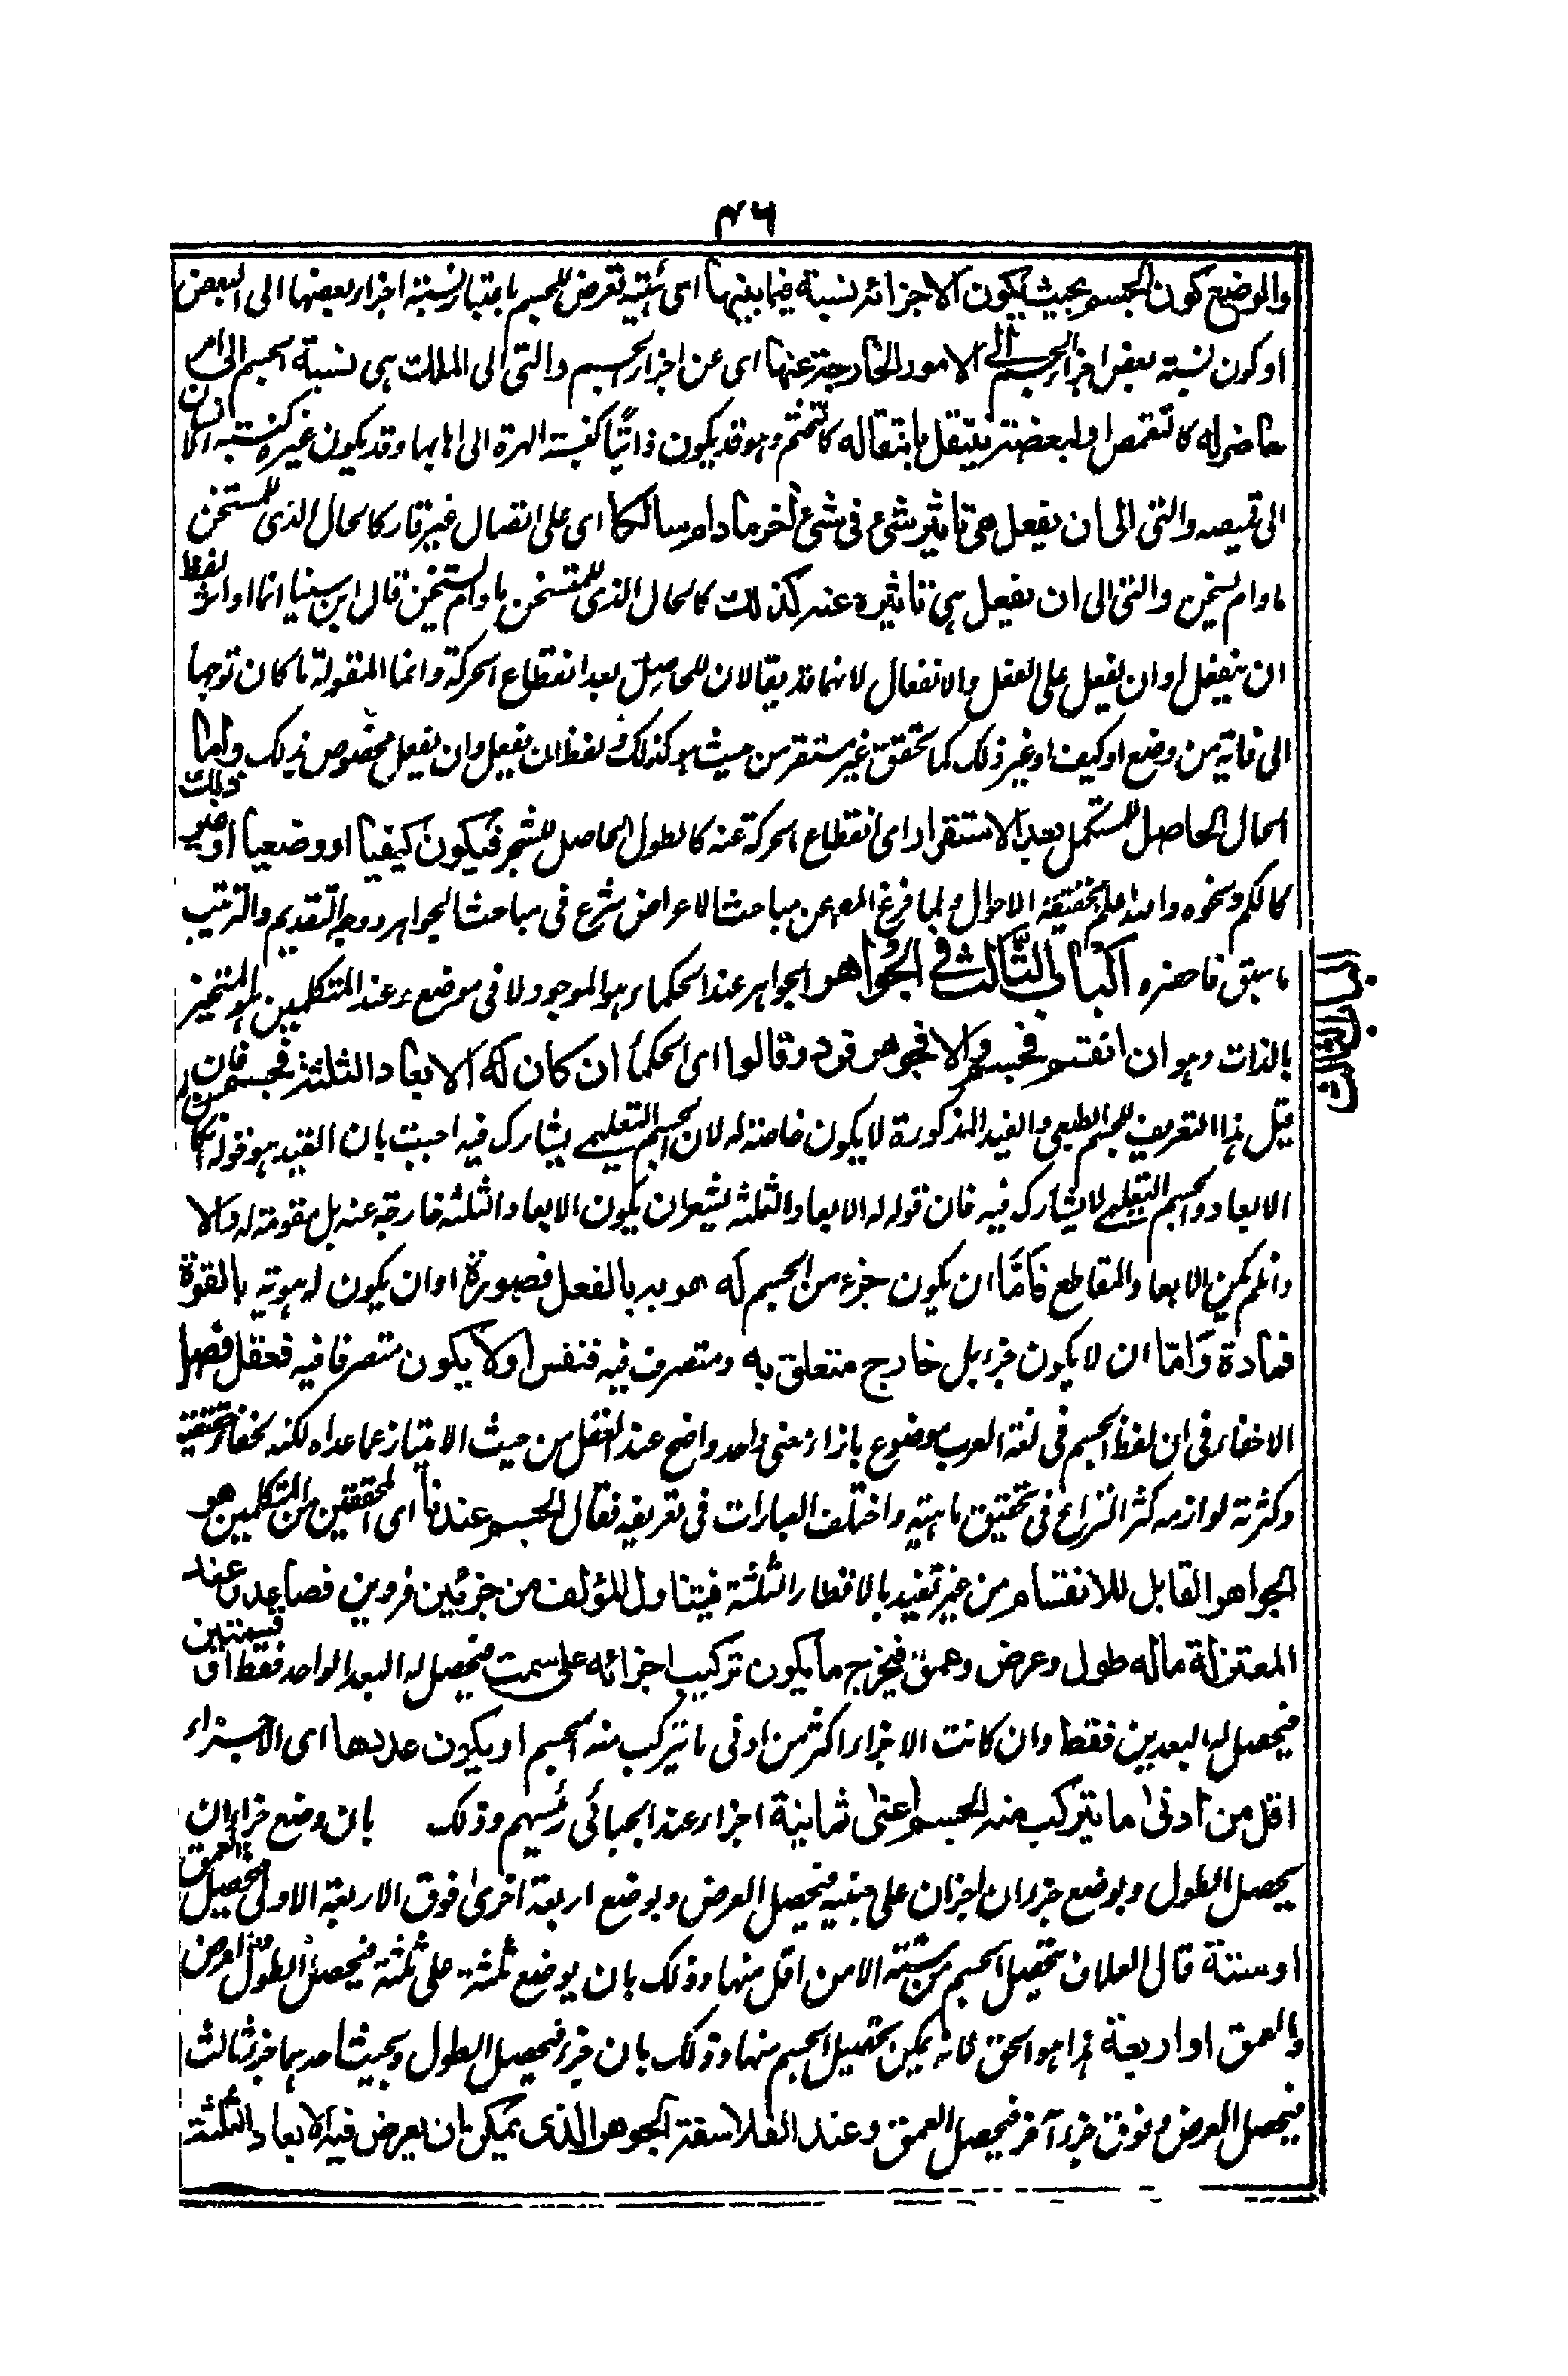 ٤٦
والوضع كون الجسم بحيث يكون لاجزائه نسبة فيما بينها اى هيئة تعرض للجسم باعتبار نسبة اجزاء بعضها الى البعض
او كون نسبة بعض اجزاء الجسم الى الامور الخارجة عنها اى عن اجزاء الجسم والتى الى الملك هى نسبة الجسم الى امر
حاضر له كالتقمص او لبعضه ينتقل بانتقاله كالتختم وهو قد يكون ذاتيا كنسبة الهرة الى اهابها وقد يكون غيره كنسبة الانسان
الى قميصه والتى الى ان يفعل هى تاثير شىء فى شىء آخر ما دام سالكا اى على اتصال غير قار كالحال الذى للمسخن
ما دام يسخن والتى الى ان ينفعل هى تاثيره عنه كذلك كالحال الذى للمتسخن ما دام يتسخن قال ابن سينا انما اوثر لفظ
ان ينفعل او ان يفعل على الفعل والانفعال لانهما قد يقالان للحاصل بعد انقطاع الحركة وانما المقولة ما كان توجها
الى غاية من وضع او كيف او غير ذلك كما تحقق غير مستقر من حيث هو كذلك ولفظ ان ينفعل وان يفعل مخصوص بذلك واما
الحال الحاصل للمستكمل بعد الاستقرار اى انقطاع الحركة عنه كالطول الحاصل للشجر فيكون كيفيا او وضعيا او غير ذلك
كالكم ونحوه والله اعلم بحقيقة الاحوال ولما فرغ المص عن مباحث الاعراض شرع فى مباحث الجواهر ووجه التقديم والترتيب
ما سبق فاحضره الباب الثالث فى الجواهر الجواهر عند الحكماء هو الموجود لا فى موضع وعند المتكلمين هو المتحيز
بالذات وهو ان انقسم فجسم والا فجوهر فرد وقالوا اى الحكماء ان كان له الابعاد الثلثة فجسم فان
قيل هذا التعريف للجسم الطبعى والقيد المذكورة لا يكون خاصة له لان الجسم التعليمى يشارك فيه اجيب بان القيد هو قوله له
الابعاد والجسم التعليمى لا يشارك فيه فان قوله له الابعاد الثلثة يشعر ان يكون الابعاد الثلثة خارجة عنه بل مقومة له والا
وان لم يكن الابعاد والمقاطع فاما ان يكون جزء من الجسم له هو به بالفعل فصورة او ان يكون له هوية بالقوة
فمادة واما ان لا يكون جزء بل خارج متعلق به ومتصرف فيه فنفس او لا يكون متصرفا فيه فعقل فصل
لاخفاء فى ان لفظ الجسم فى لغة العرب موضوع بازاء معنى واحد واضح عند العقل من حيث الامتياز عما عداه لكنه لخفاء حقيقته
وكثرة لوازمه كثر النزاع فى تحقيق ماهيته واختلف العبارات فى تعريفه فقال الجسم عندنا اى المحققين من المتكلمين هو
الجواهر القابل للانقسام من غير تقييد بالاقطار الثلثة فيتناول للمؤلف من جزئين فردين فصاعدا وعند
المعتزلة ما له طول وعرض وعمق فيخرج ما يكون تركيب اجزائه على سمت فيحصل له البعد الواحد فقط او سمتين
فيحصل له البعدين فقط وان كانت الاجزاء اكثر من ادنى ما يتركب منه الجسم او يكون عددها اى الاجزاء
اقل من ادنى ما يتركب منه الجسم اعنى ثمانية اجزاء عند الجبائى رئيسهم وذلك بان وضع جزءان
يحصل الطول وبوضع جزءان اخران على جنبيه فيحصل العرض وبوضع اربعة اخرى فوق الاربعة الاولى تحصيل العمق
او ستة قال العلاف تحصيل الجسم من ستة الا من اقل منها وذلك بان يوضع ثلثة على ثلثة فيحصل الطول والعرض
والعمق او اربعة هذا هو الحق لانه يمكن تحصيل الجسم منها وذلك بان جزء فيحصل الطول وبجنب احدهما جزء ثالث
فيحصل العرض وفوق جزء آخر فيحصل العمق وعند الفلاسفة الجوهر الذى يمكن ان يعرض فيه الابعاد الثلثة